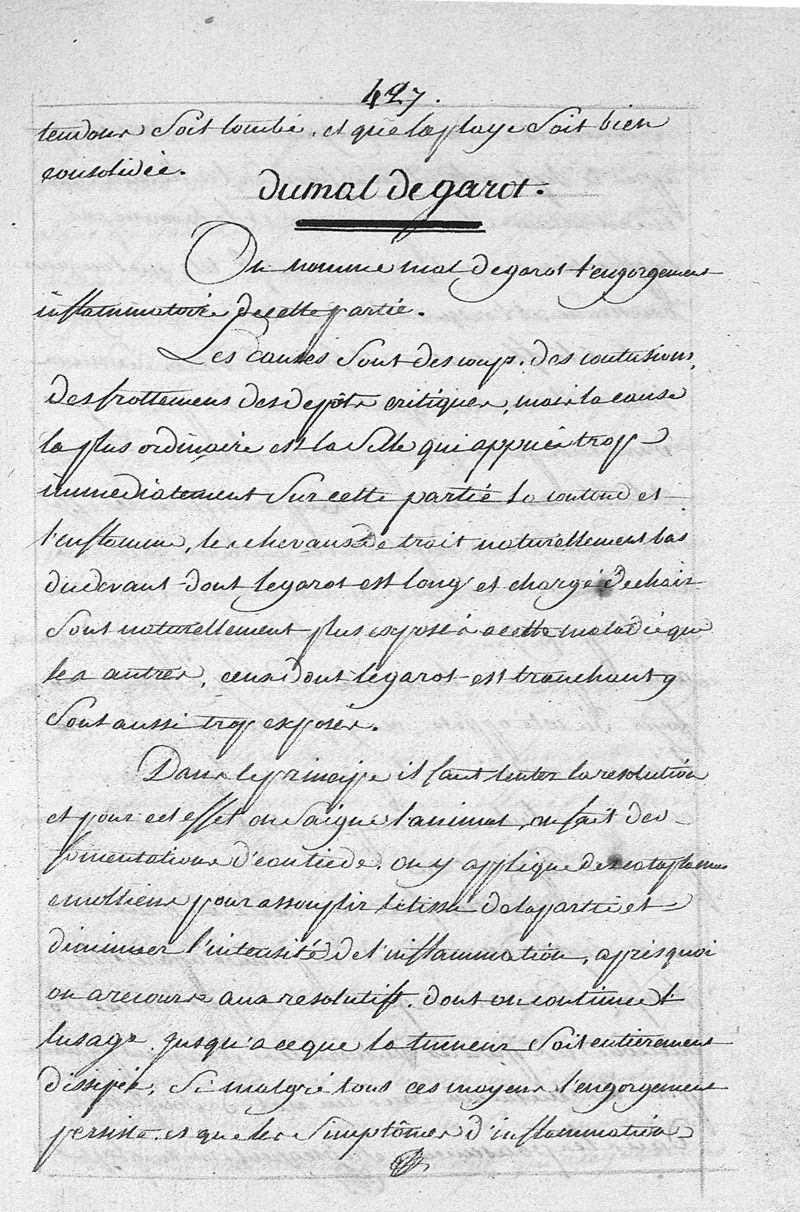 427.
tendons soit tombé, et que la playe soit bien
consolidée.
du mal de garot.
On nomme mal de garot l'engorgement
inflammatoire de cette partie.
Les causes sont des coup. des contusions,
des frottemens des depôts critiques, mais la cause
la plus ordinaire est la selle qui appuiée trop
immediatement sur cette partie la contond et
l'enflamme, les chevaux de trait naturellement bas
du devant dont le garot est long et chargé de chair
sont naturellement plus exposés a cette maladie que
les autres, ceux dont le garot est tranchant y
sont aussi trop exposés.
Dans le principe il faut tenter la resolution
et pour cet effet on saigne l'animal, on fait des
fomentations d'eau tiede. on y applique des cataplasmes
emolliens pour assouplir le tissu de la partie et
diminuer l'intensité de l'inflammation, après quoi
on a recours aux resolutifs dont on continue
l'usage jusqu'a ce que la tumeur soit entierement
dissipée, si malgré tous ces moyens l'engorgement
persiste. et que les simptômes d'inflammation